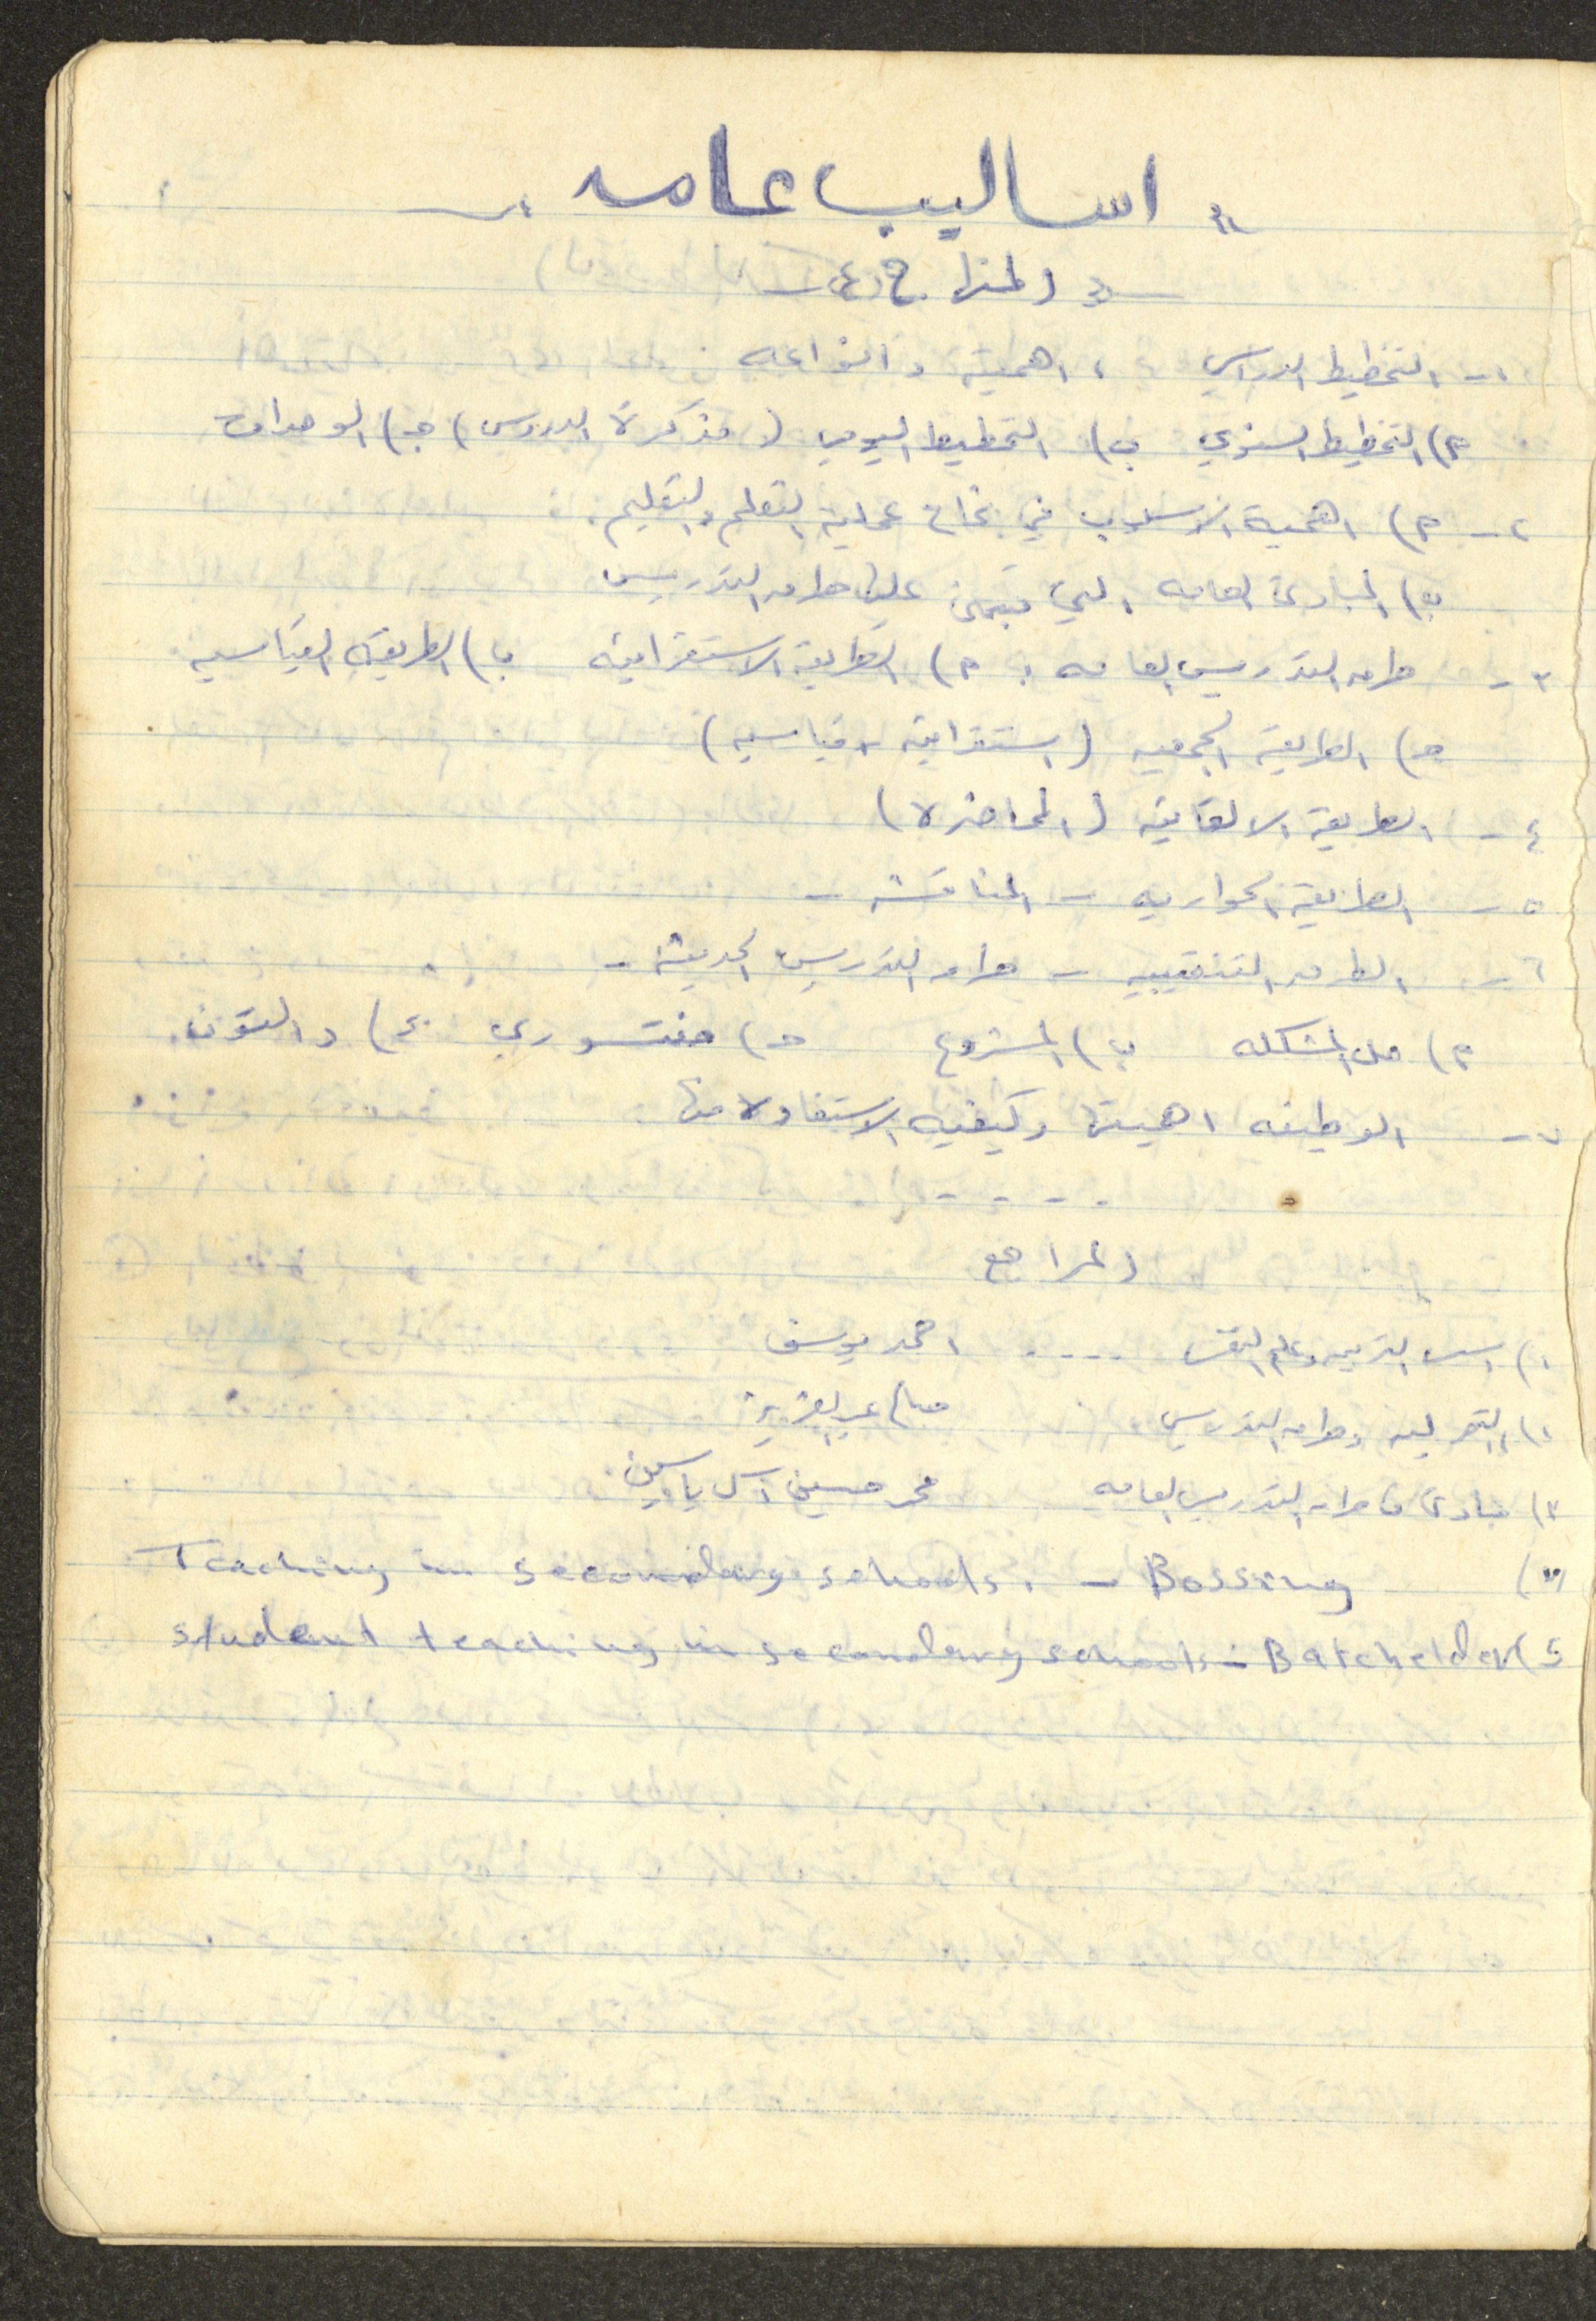 " اساليب عامه "
« المنهاج »
١ـ التخطيط الدراسي ، اهميته وانواعه
أ) التخطيط السنوي ب) التخطيط اليومي ( مذكرة الدروس ) جـ) الوحدات
٢ـ أ) اهمية الاسلوب في نجاح عملية التعلم والتعليم .
ب) المبادئ العامه التي تبنى عليها طرق التدريس
٣ـ طرق التدريس العامه : أ) الطريقة الاستقرائيه ب) الطريقه القياسيه
جـ) الطريقة الجمعيه ( استقرائيه + قياسيه )
٤ـ الطريقة الالقائيه ( المحاضره )
٥ـ الطريقة الحواريه ـ المناقشه ـ
٦ـ الطرق التنقيبيه ـ طرق التدريس الحديثه ـ
أ) حل المشكله ب) المشروع جـ) منتسوري د) دالتون
٧ـ الوظيفه اهميتها وكيفيه الاستفاده منها
المراجع
١) اسس التربيه وعلم النفس .... احمد يوسف
٢) التربيه وطرق التدريس صالح عبد العزيز
٣) مبادئ في طرق التدريس العامه محمد حسين آل ياسين
٤) Teaching in secondary schools. – Bossing
٥) student teaching in secondary schools – Batchelder